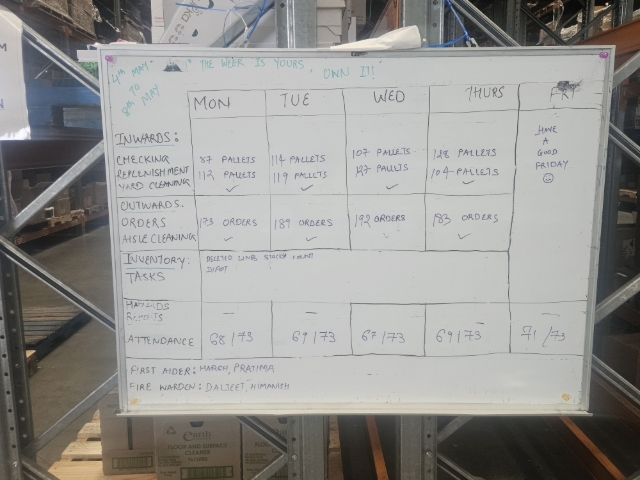 4TH MAY TO 8TH MAY
" THE WEEK IS YOURS OWN IT!"
MON TUE WED THURS FRI
INWARDS:
CHECKING 87 PALLETS 114 PALLETS 107 PALLETS 128 PALLETS
REPLENISHMENT 112 PALLETS 119 PALLETS 127 PALLETS 104 PALLETS
YARD CLEANING ✓ ✓ ✓ ✓
HAVE
A
GOOD
FRIDAY
☺
OUTWARDS.
ORDERS 173 ORDERS 189 ORDERS 192 ORDERS 183 ORDERS
AISLE CLEANING ✓ ✓ ✓ ✓
INVENTORY: DELETED LINES STOCK COUNT
TASKS
HAZARDS
— — — —
ATTENDANCE 68/73 69/73 67/73 69/73 71/73
FIRST AIDER: HARSH, PRATIMA
FIRE WARDEN: DALJEET, HIMANISH
FLOOR AND SURFACE
CLEANER